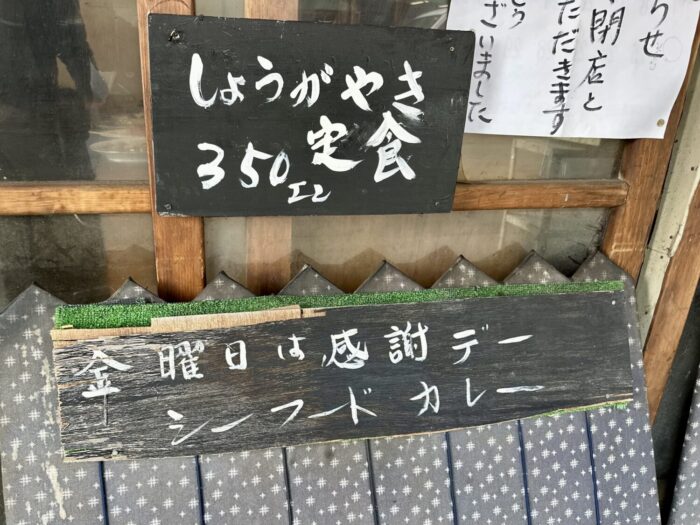 しょうがやき
定食
350エン
金曜日は感謝デー
シーフードカレー
らせ
閉店と
ただきます
ございました